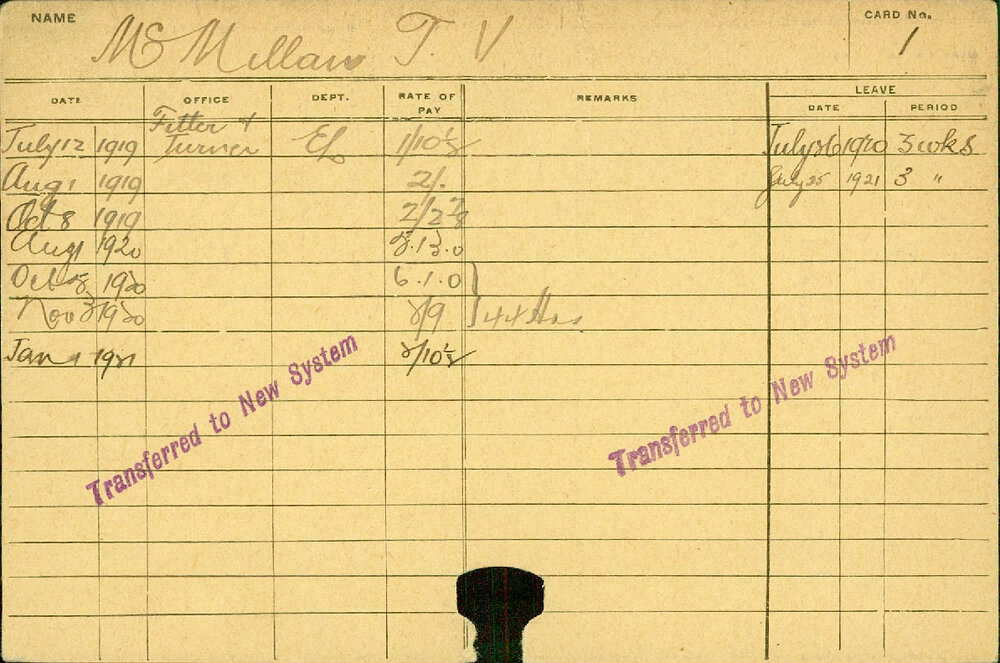 NAME McMillan T. V CARD No. 1
DATE OFFICE DEPT. RATE OF PAY REMARKS LEAVE
DATE PERIOD
July 12 1919 Fitter & Turner EL 1/10½ July 26 1920 3 wks
Aug 1 1919 2/. July 25 1921 3 "
Oct 8 1919 2/2⅞
Aug 1 1920
Oct 8 1920 6.1.0
Nov 3 1920 2/9 44 Hrs
Jan 1 1921 2/10½
Transferred to New System Transferred to New System